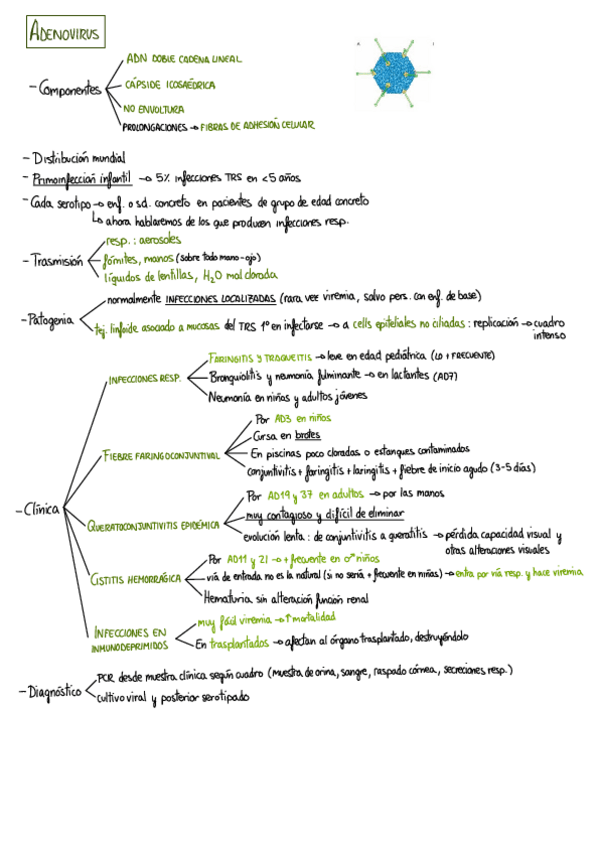 ADENOVIRUS
- Componentes
ADN DOBLE CADENA LINEAL
CÁPSIDE ICOSAÉDRICA
NO ENVOLTURA
PROLONGACIONES → FIBRAS DE ADHESIÓN CELULAR
- Distribución mundial
- Primoinfección infantil → 5% infecciones TRS en <5 años
- Cada serotipo → enf. o sd. concreto en pacientes de grupo de edad concreto
↳ ahora hablaremos de los que producen infecciones resp.
- Trasmisión
resp.: aerosoles
fómites, manos (sobre todo mano-ojo)
líquidos de lentillas, H2O mal clorada
- Patogenia
normalmente INFECCIONES LOCALIZADAS (rara vez viremia, salvo pers. con enf. de base)
tej. linfoide asociado a mucosas del TRS 1º en infectarse → a cells epiteliales no ciliadas: replicación → cuadro
intenso
- Clínica
INFECCIONES RESP.
FARINGITIS Y TRAQUEITIS → leve en edad pediátrica (LO + FRECUENTE)
Bronquiolitis y neumonía fulminante → en lactantes (AD7)
Neumonía en niños y adultos jóvenes
FIEBRE FARINGOCONJUNTIVAL
Por AD3 en niños
Cursa en brotes
En piscinas poco cloradas o estanques contaminados
conjuntivitis + faringitis + laringitis + fiebre de inicio agudo (3-5 días)
QUERATOCONJUNTIVITIS EPIDÉMICA
Por AD19 y 37 en adultos → por las manos
muy contagioso y difícil de eliminar
evolución lenta: de conjuntivitis a queratitis → pérdida capacidad visual y
otras alteraciones visuales
CISTITIS HEMORRÁGICA
Por AD11 y 21 → + frecuente en ♂ niños
vía de entrada no es la natural (si no sería + frecuente en niñas) → entra por vía resp. y hace viremia
Hematuria sin alteración función renal
INFECCIONES EN
INMUNODEPRIMIDOS
muy fácil viremia → ↑ mortalidad
En trasplantados → afectan al órgano trasplantado, destruyéndolo
- Diagnóstico
PCR desde muestra clínica según cuadro (muestra de orina, sangre, raspado córnea, secreciones resp.)
cultivo viral y posterior serotipado